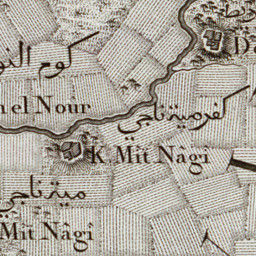 كوم النو
n el Nour
De
كفر مية ناجي
K. Mit Nâgi
مية ناجي
Mit Nâgi